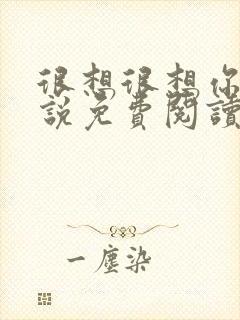 很想很想你
說免費閱讀
一塵染